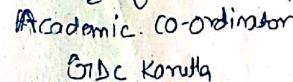 Academic. Co-ordinator
GDC Korutla